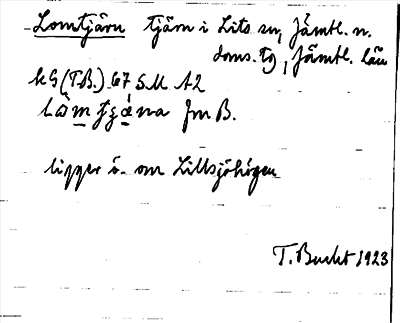 Lomtjärn tjärn i Lits sn, Jämtl. n.
doms. tg, Jämtl. län
kG (T.B.) 67 SM A2
ligger ö. om Lillsjöhögen
T. Bucht 1923